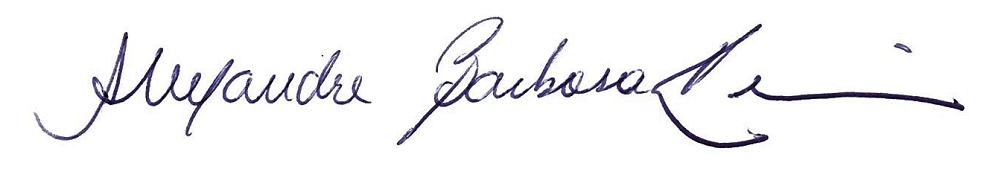 Alexandre Barbosa